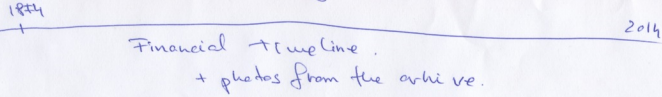 1874 2014
Financial timeline.
+ photos from the arhive.